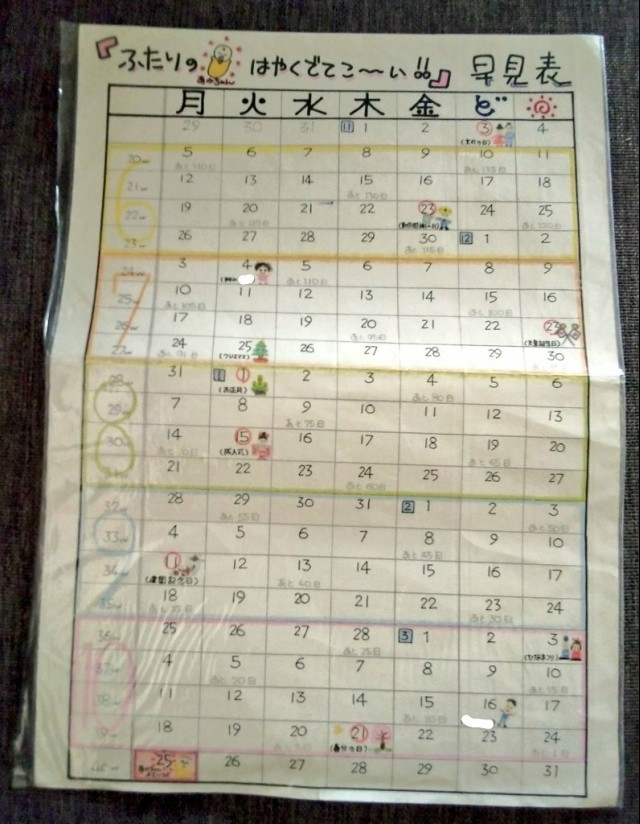 『ふたりの はやくでてこ〜い!!』 早見表
月 火 水 木 金 ど
29 30 31 11 1 2 3 4
(文化の日)
20w 5 6 7 8 9 10 11
21w 12 13 14 15 16 17 18
22w 19 20 21 22 23 24 25
23w 26 27 28 29 30 12 1 2
24w 3 4 5 6 7 8 9
あと110日
25w 10 11 12 13 14 15 16
あと105日 あと100日
26w 17 18 19 20 21 22 23
あと95日 (天皇誕生日)
27w 24 25 26 27 28 29 30
あと91日 (クリスマス)
28w 31 1 1 2 3 4 5 6
(お正月) あと80日
29w 7 8 9 10 11 12 13
あと75日
30w 14 15 16 17 18 19 20
あと70日 (成人式) あと65日
21 22 23 24 25 26 27
あと60日
32w 28 29 30 31 2 1 2 3
あと55日 あと50日
33w 4 5 6 7 8 9 10
あと45日
34w 11 12 13 14 15 16 17
(建国記念日) あと40日
35w 18 19 20 21 22 23 24
あと35日 あと30日
36w 25 26 27 28 3 1 2 3
あと25日 (ひなまつり)
37w 4 5 6 7 8 9 10
あと20日 あと15日
38w 11 12 13 14 15 16 17
あと10日
39w 18 19 20 21 22 23 24
(春分の日)
40w 25 26 27 28 29 30 31